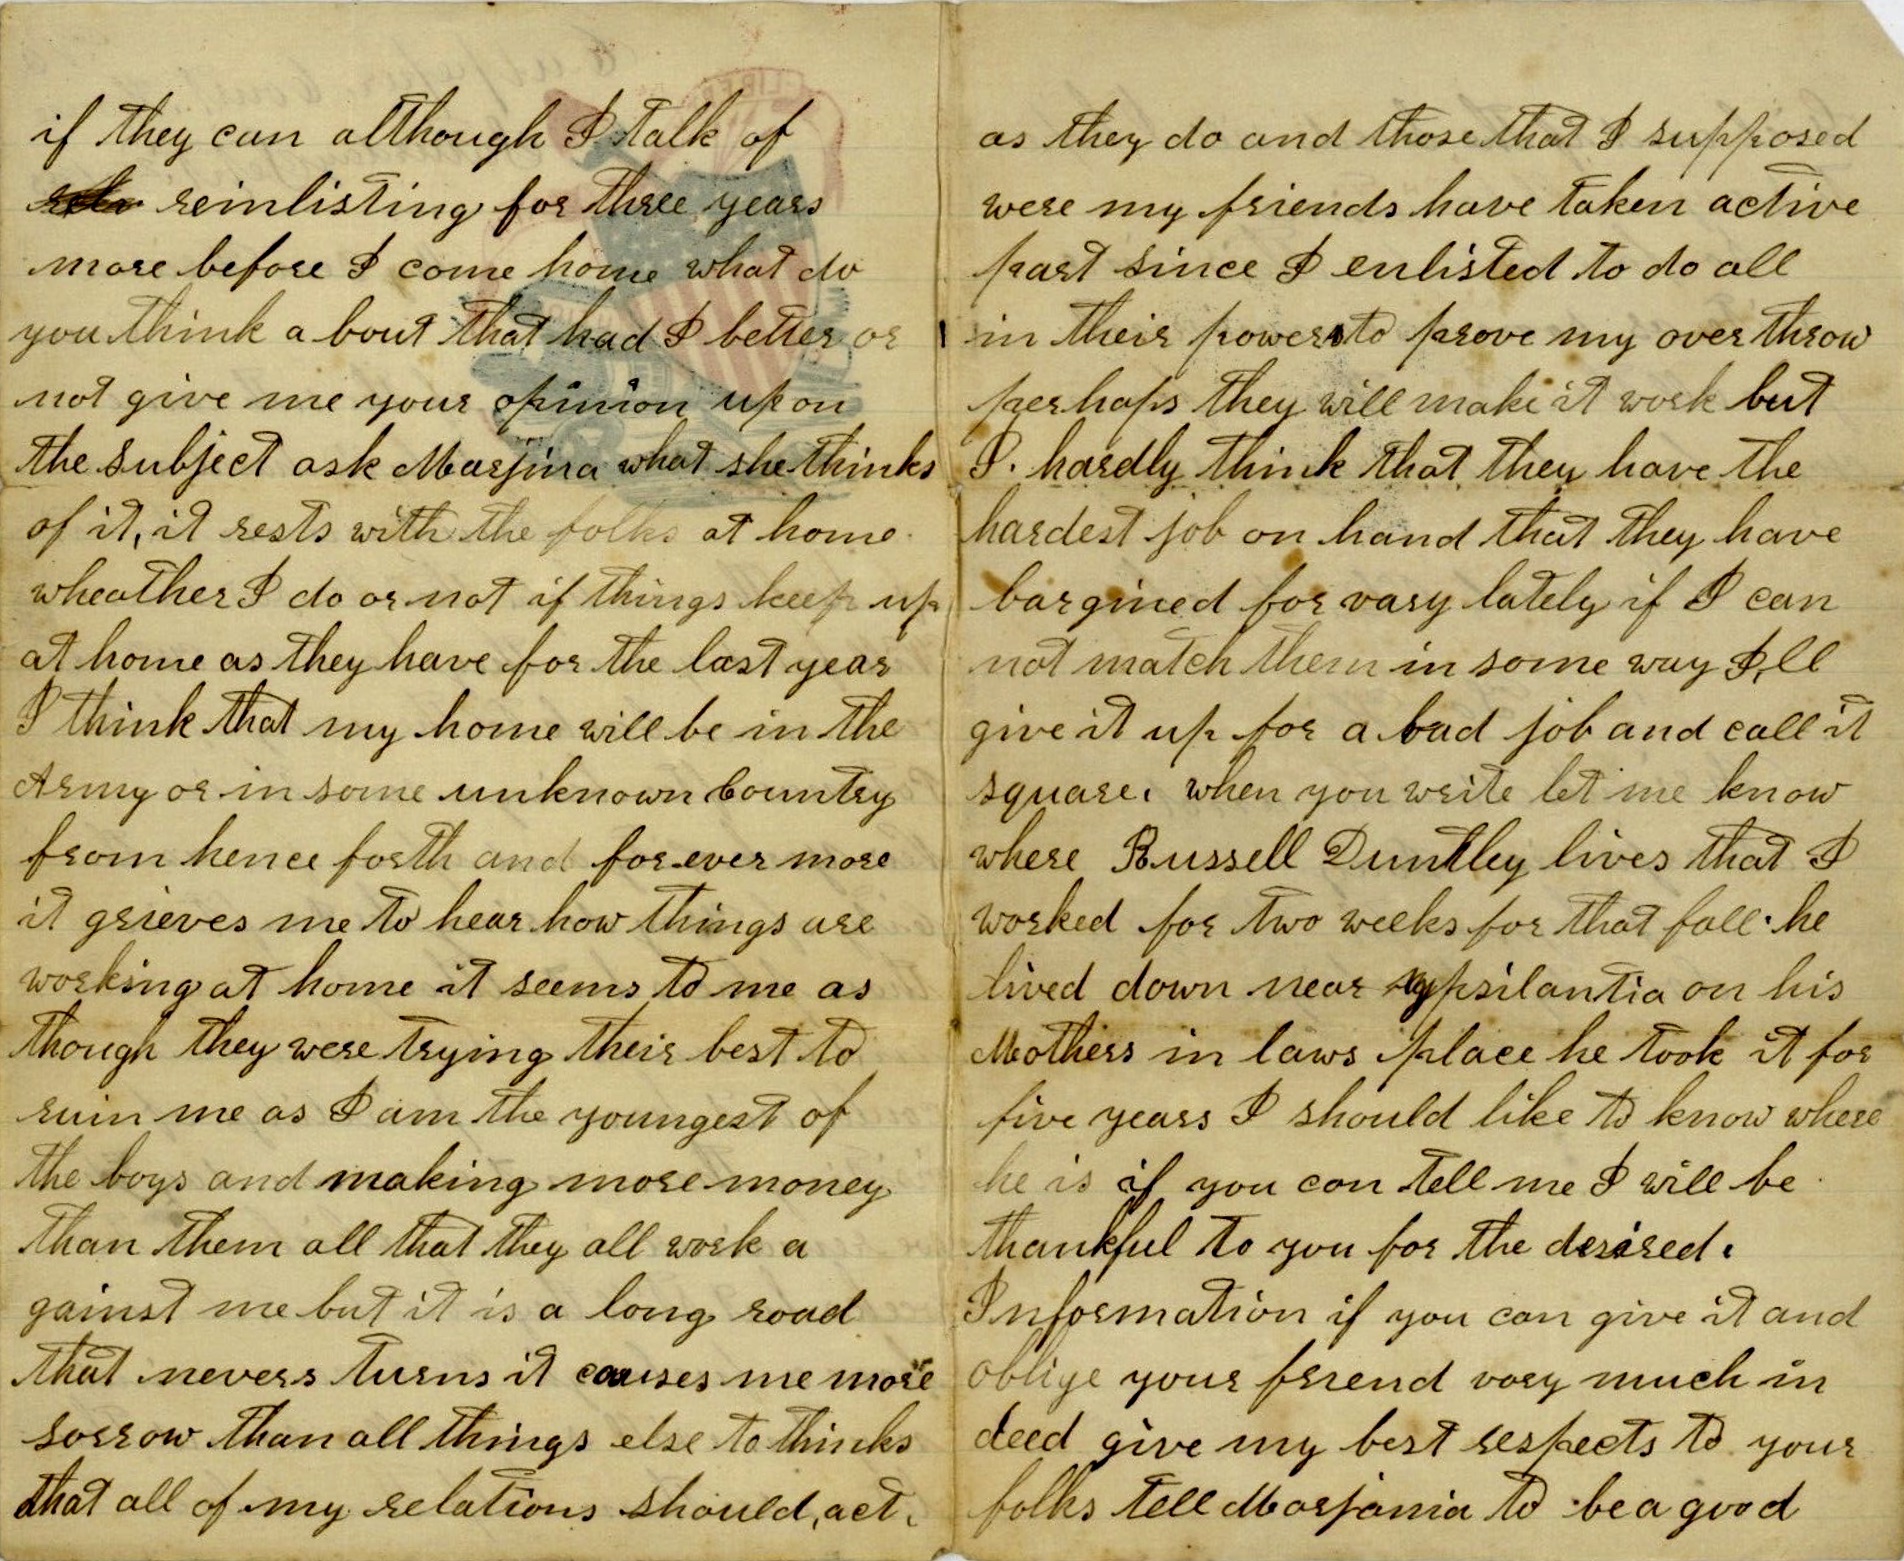 if they can although I talk of
reinlisting for three years
more before I come home what do
you think a bout that had I better or
not give me your opinion upon
the subject ask Marjina what she thinks
of it, it rests with the folks at home.
wheather I do or not if things keep up
at home as they have for the last year
I think that my home will be in the
Army or in some unknown Country
from hence forth and for ever more
it grieves me to hear how things are
working at home it seems to me as
though they were trying their best to
ruin me as I am the youngest of
the boys and making more money
than them all that they all work a
gainst me but it is a long road
that nevers turns it causes me more
sorrow than all things else to thinks
that all of my relations should, act.
as they do and those that I supposed
were my friends have taken active
part since I enlisted to do all
in their powers to prove my over throw
perhaps they will make it work but
I. hardly think that they have the
hardest job on hand that they have
bargined for vary lately if I can
not match them in some way I,ll
give it up for a bad job and call it
square. when you write let me know
where Russell Duntley lives that I
worked for two weeks for that fall. he
lived down near ypsilantia on his
Mothers in laws place he took it for
five years I should like to know where
he is if you con tell me I will be
thankful to you for the desired.
Information if you can give it and
oblige your friend vary much in
deed give my best respects to your
folks tell Marjania to be a good
LIBER